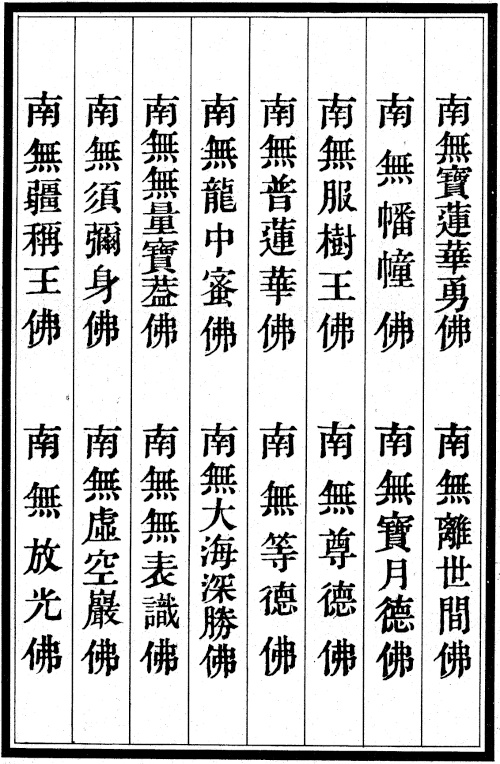 南無寶蓮華勇佛
南無離世間佛
南無幡幢佛
南無寶月德佛
南無服樹王佛
南無尊德佛
南無普蓮華佛
南無等德佛
南無龍中蜜佛
南無大海深勝佛
南無無量寶葢佛
南無無表識佛
南無須彌身佛
南無虛空巖佛
南無疆稱王佛
南無放光佛